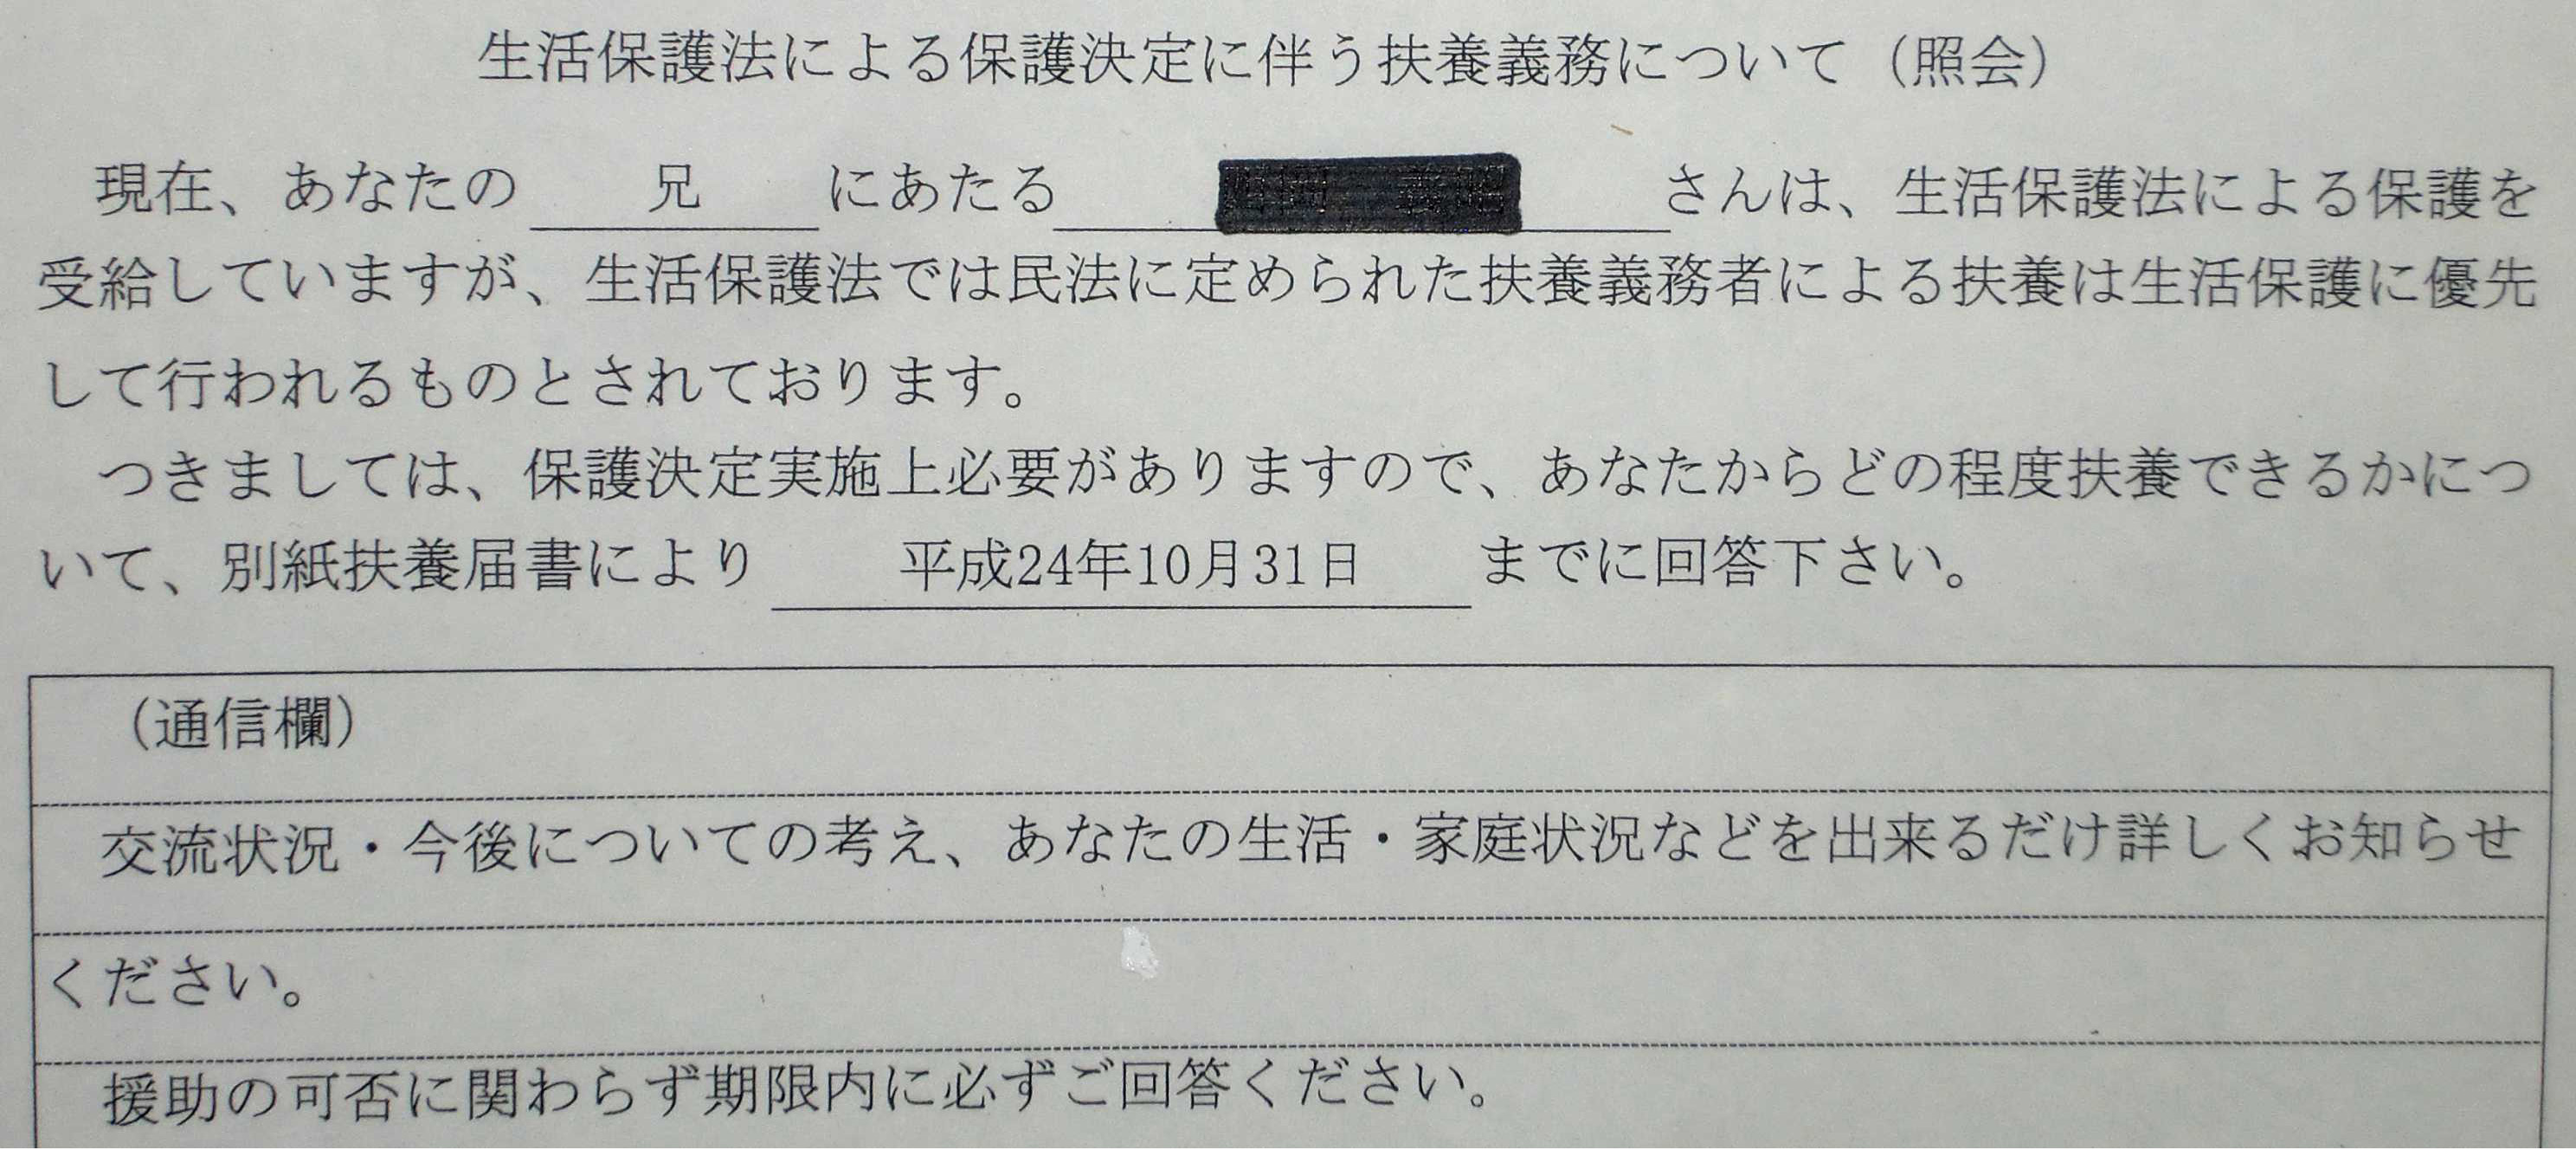 生活保護法による保護決定に伴う扶養義務について（照会）
現在、あなたの 兄 にあたる さんは、生活保護法による保護を
受給していますが、生活保護法では民法に定められた扶養義務者による扶養は生活保護に優先
して行われるものとされております。
つきましては、保護決定実施上必要がありますので、あなたからどの程度扶養できるかにつ
いて、別紙扶養届書により 平成24年10月31日 までに回答下さい。
（通信欄）
交流状況・今後についての考え、あなたの生活・家庭状況などを出来るだけ詳しくお知らせ
ください。
援助の可否に関わらず期限内に必ずご回答ください。